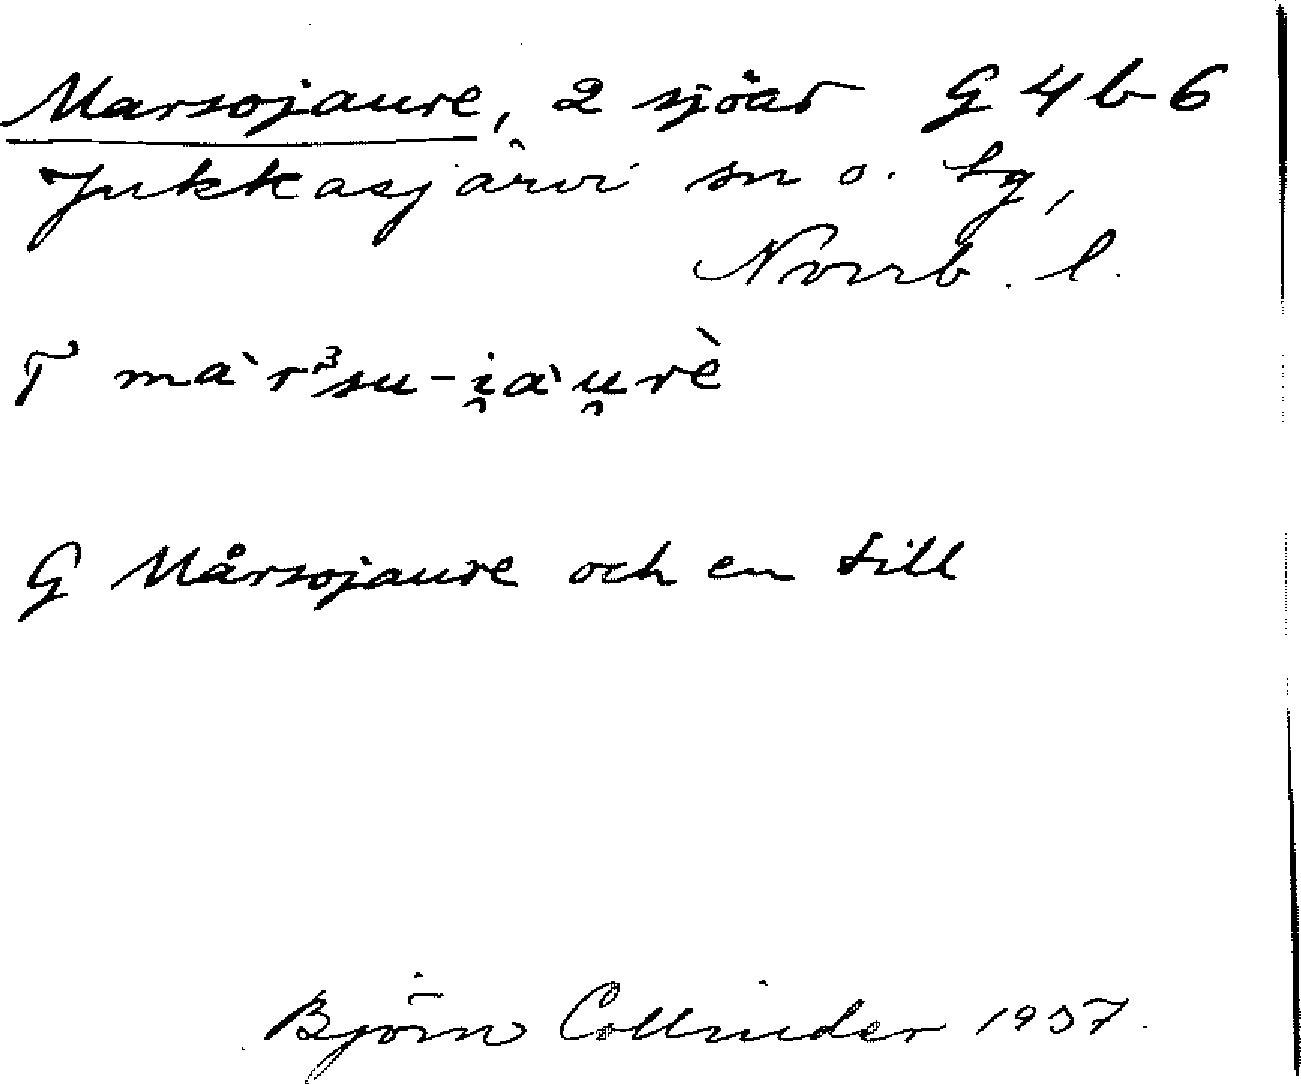 Marsojaure, 2 sjöar G 4 b 6
Jukkasjärvi sn o. tg,
Norrb. l.
T màr³su-i̯àu̯rè
G Mårsojaure och en till
Björn Collinder 1957.